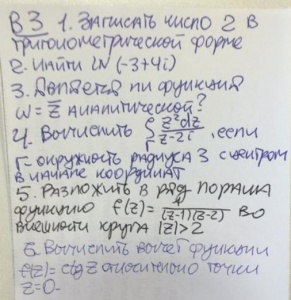 В3 1. Записать число 2 в
тригонометрической форме
2. Найти LN (-3+4i)
3. Является ли функция
w = z̅ аналитической?
4. Вычислить ∫_Γ z²dz/(z-2i), если
Γ - окружность радиуса 3 с центром
в начале координат
5. Разложить в ряд Лорана
функцию f(z) = 1/((z-1)(z-2)) во
внешности круга |z|>2
6. Вычислить вычет функции
f(z) = ctg z относительно точки
z=0.